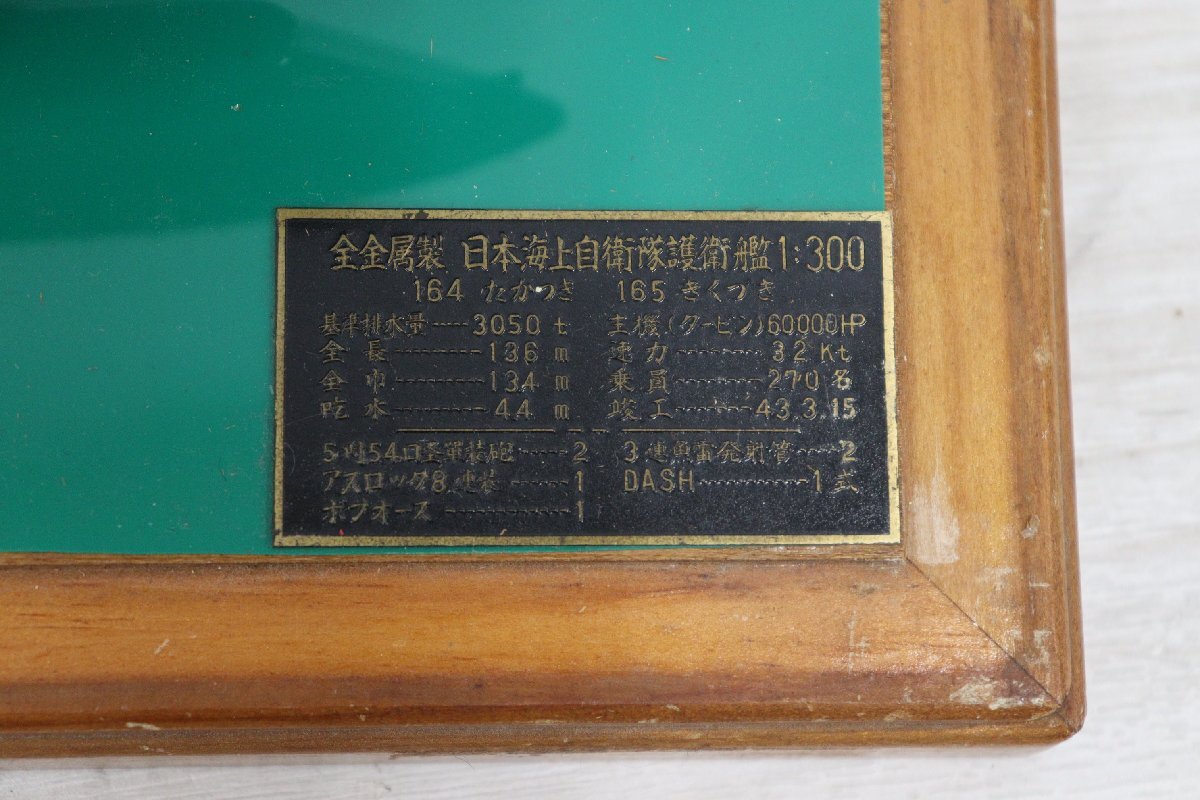 全金属製 日本海上自衛隊護衛艦 1:300
164 たかつき 165 きくづき
基準排水量-----3050 t 主機(タービン)60000HP
全長--------136 m 速力--------32 Kt
全巾--------134 m 乗員--------270名
吃水--------44 m 竣工-------43.3.15
5吋54口径単装砲-----2 3連魚雷発射管----2
アスロック8連装-----1 DASH----------1式
ボフォース-----------1